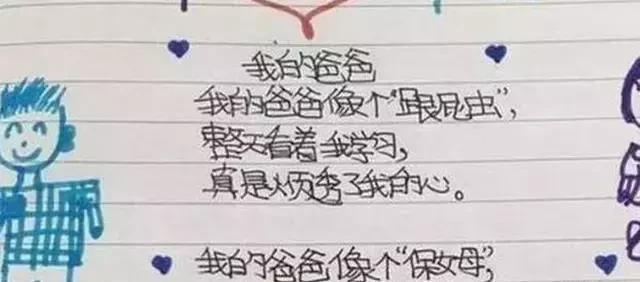 我的爸爸
我的爸爸像个“跟屁虫”,
整天看着我学习,
真是烦透了我的心。
我的爸爸像个“保女母”,